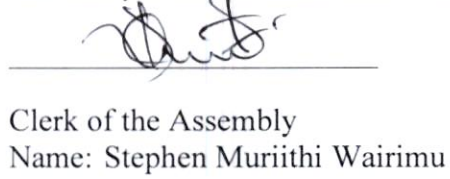 Clerk of the Assembly
Name: Stephen Muriithi Wairimu